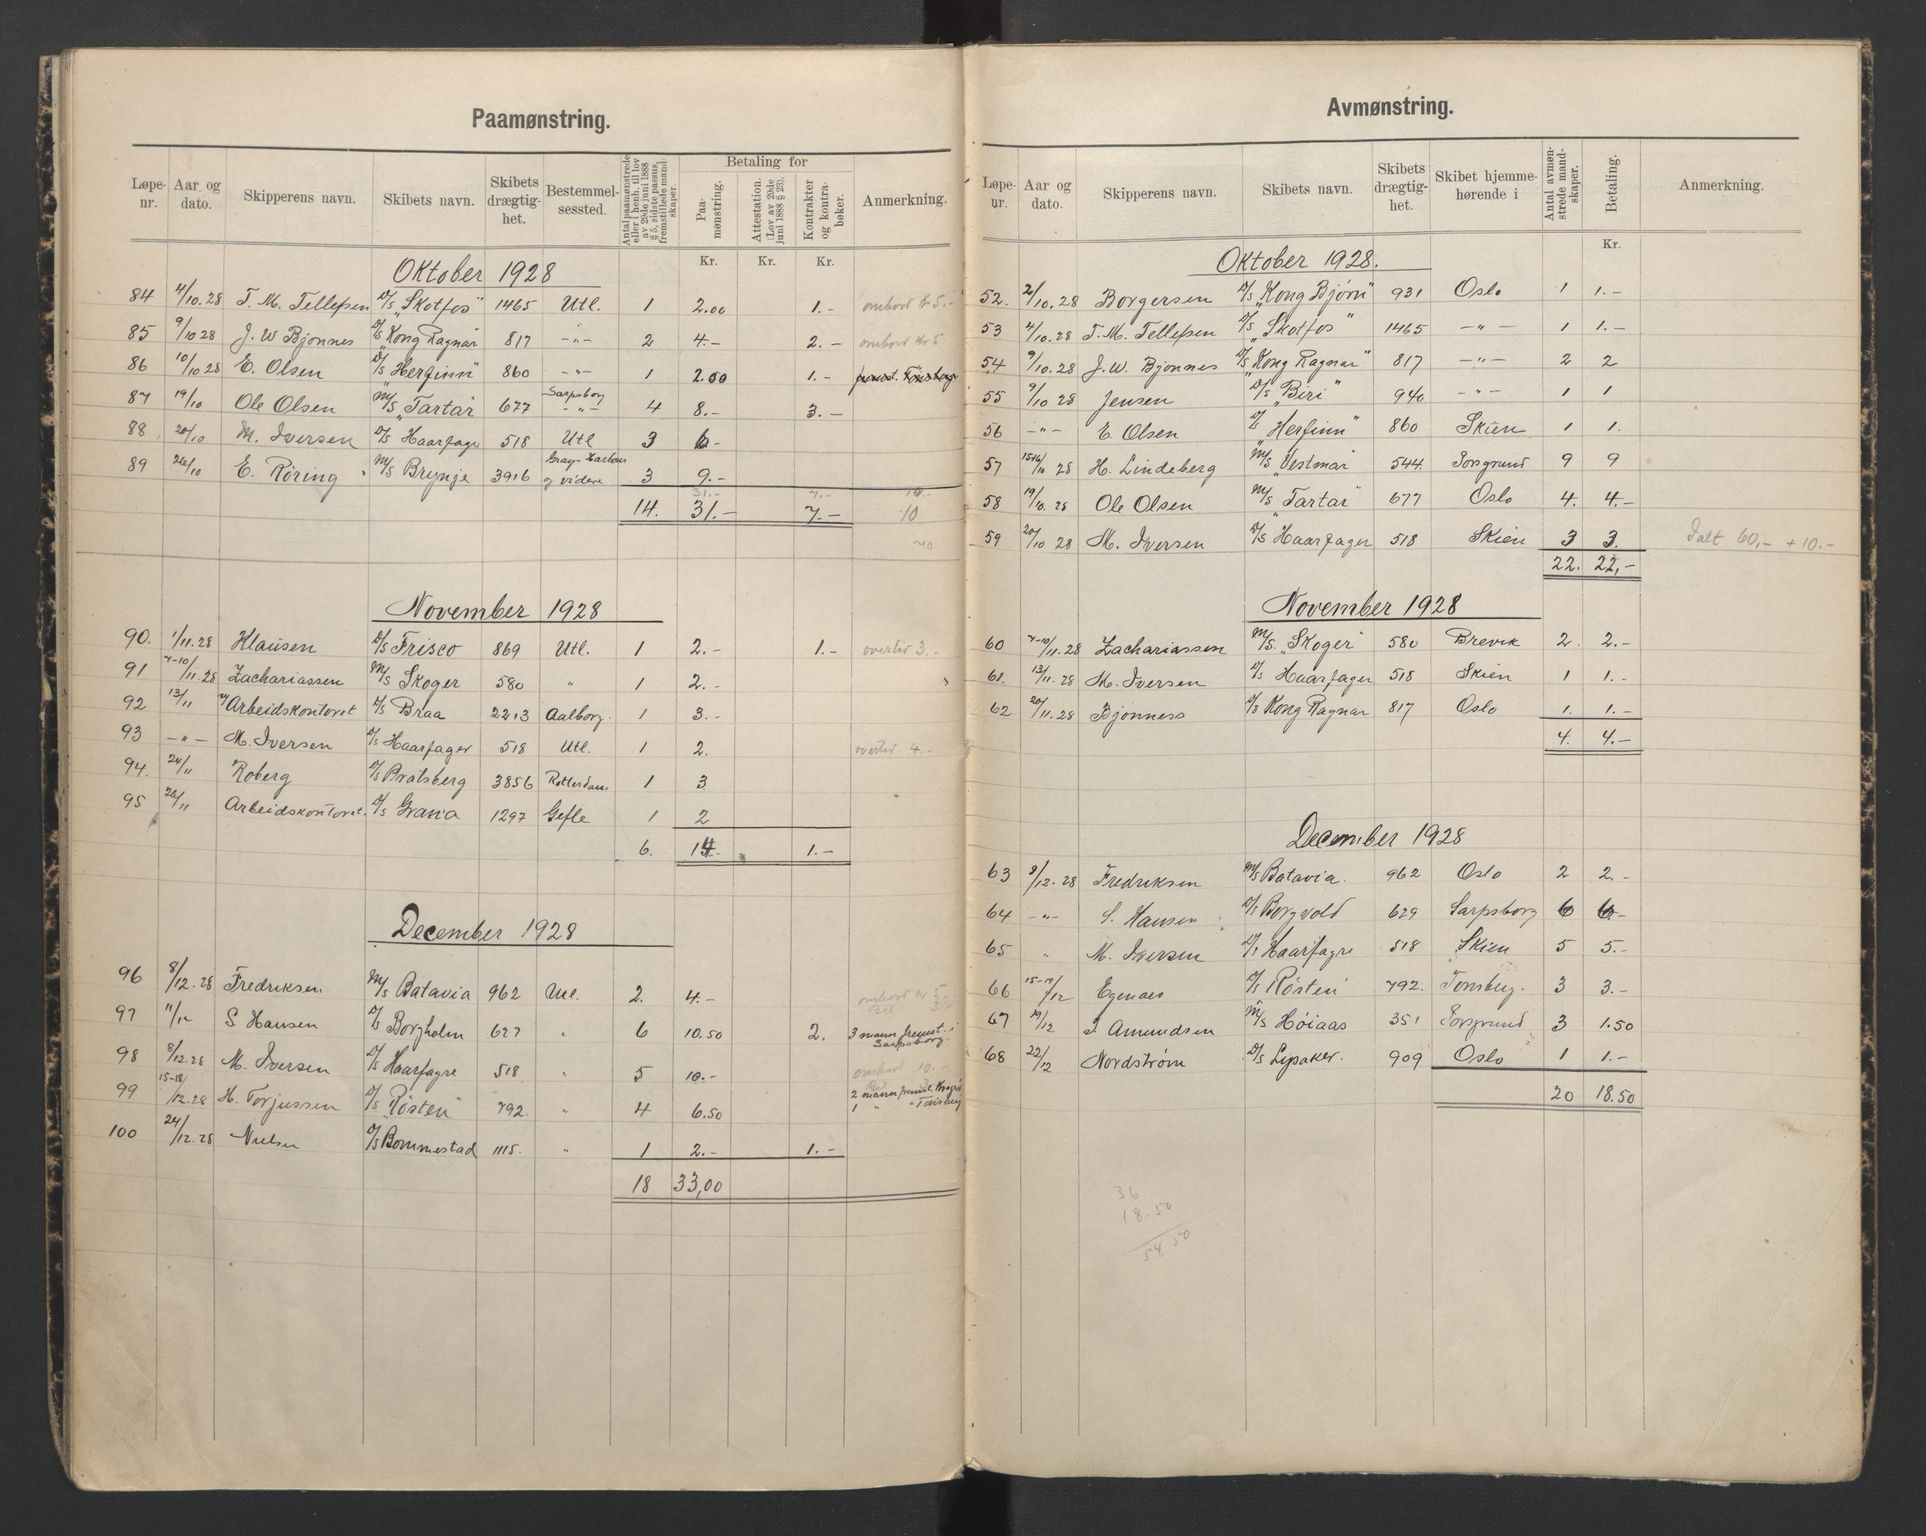 Paamønstring.
Løpe-nr. Aar og dato. Skipperens navn. Skibets navn. Skibets drægtig-het. Bestemmel-sessted. Antal paamønstrede eller i henh. til lov av 29de juni 1888 § 5, sidste passus, fremstillede mand-skaper. Betaling for Paa-mønstring. Attestation. (Lov av 29de juni 1888 § 23). Kontrakter og kontra-bøker. Anmerkning.
Kr. Kr. Kr.
Oktober 1928
84 4/10.28 T. M. Tellefsen D/S „Skotfos" 1465 Utl. 1 2.00 1.- ombord Kr 5.-
85 9/10 28 J. W Bjønnes D/S Kong Ragnar 817 -"- 2 4.- 2.- ombord Kr 5
86 10/10 28 E. Olsen D/S „Herfinn" 860 -"- 1 2.00 1.- fremst. Tønsberg
87 19/10 Ole Olsen M/S „Tartar 677 Sarpsborg -"- 4 8.- 3.-
88 20/10 M. Iversen D/S Haarfagr 518 Utl 3 6.-
89 26/10 E. Røring M/S Brynje 3916 Grays Harbour og videre 3 9.-
31.- 7.- 10.-
14. 31.- 7.- 10
November 1928
90. 1/11.28 Klausen D/S Frisco 869 Utl. 1 2.- 1.- overtid 3.-
91 7-10/11.28 Zachariassen M/S Skoger 580 " 1 2.-
92 13/11 Arbeidskontoret D/S Braa 2213 Aalborg. 1 3.-
93 -"- M. Iversen D/S Haarfager 518 Utl. 1 2. overtid 4.-
94. 24/11 Roberg D/S Bratsberg 3856 Rotterdam 1 3
95 26/11 Arbeidskontoret. D/S Grania 1297 Gefle 1 2
6. 14.- 1.-
December 1928
96 8/12.28 Fredriksen M/S Batavia 962 Utl. 2. 4.- ombord kr 5
97 11/12 S Hansen D/S Borgholm 627 " 6 10.50 2. 3 mann fremst. i Sarpsborg.
98 8/12.28 M. Iversen D/S Haarfagre 518 " 5 10.- ombord 10.-
99 15-18/12.28 H. Torjussen D/S „Røsten" 792 " 4 6.50 2 mann fremst. Kragerø
1 " "
100 24/12.28 Nielsen D/S Bommestad 1115. " 1 2.- 1.-
18 33,00
Avmønstring.
Løpe-nr. Aar og dato. Skipperens navn. Skibets navn. Skibets drægtig-het. Skibet hjemme-hørende i Antal avmøn-strede mand-skaper. Betaling. Anmerkning.
Kr.
Oktober 1928.
52. 2/10.28 Borgersen D/S „Kong Bjørn" 931 Oslo 1 1.-
53 4/10.28 T. M. Tellefsen D/S „Skotfos" 1465 -"- 1 1.-
54 9/10.28 J. W. Bjønnes D/S „Kong Ragnar" 817 -"- 2 2
55 9/10 28 Jensen D/S „Biri" 940 -"- 1 1
56 -"- E. Olsen D/S „Herfinn" 860 Skien 1 1.
57 15-16/10 28 H. Lindeberg M/S „Vestmar 544. Porsgrund 9 9
58 19/10.28 Ole Olsen M/S „Tartar" 677 Oslo 4. 4.-
59 20/10 28 M. Iversen D/S Haarfager 518 Skien 3 3. Ialt 60,- + 10.-
22. 22,-
November 1928
60 7-10/11.28 Zachariassen M/S. „Skoger" 580 Brevik 2. 2.-
61. 13/11.28 M. Iversen D/S Haarfager 518 Skien 1 1.-
62 20/11.28 Bjønness D/S Kong Ragnar 817 Oslo 1. 1.-
4. 4.-
December 1928
63 8/12.28 Fredriksen M/S Batavia. 962 Oslo 2 2.-
64 -"- S. Hansen D/S Borgvold 629 Sarpsborg 6 6.-
65 " M. Iversen D/S Haarfagre 518 Skien 5 5.-
66 15-19/12 Egenaes D/S Røsten 792. Tønsberg. 3 3.-
67 19/12 J. Amundsen M/S Høiaas 351 Porsgrund 3 1.50
68 22/12 Nordstrøm D/S Lysaker. 909 Oslo 1 1.-
20 18.50
36
18.50
54 50